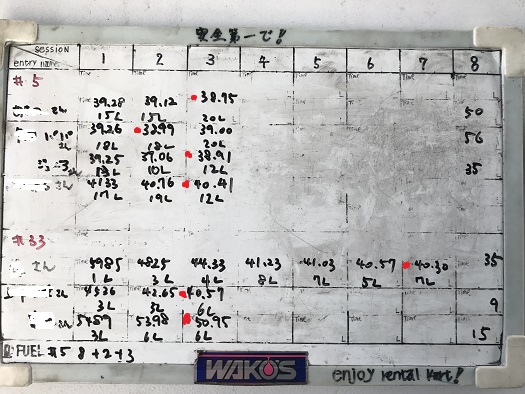 安全第一で!
session
entry name
1 2 3 4 5 6 7 8
#5
39.28 39.12 38.95
さん 15L 15L 20L 50
39.26 38.99 39.00
18L 18L 20L 56
39.25 39.06 38.91
10L 12L 35
41.33 40.76 40.41
さん 17L 19L 12L
#33
さん 49.85 48.25 44.33 41.23 41.03 40.57 40.30 35
1L 3L 4L 8L 7L 5L 7L
45.36 42.65 40.57
3L 3L 6L 9
54.87 53.98 50.95
3L 6L 6L 15
FUEL #5 8+2+3
WAKO'S
enjoy rental kart!